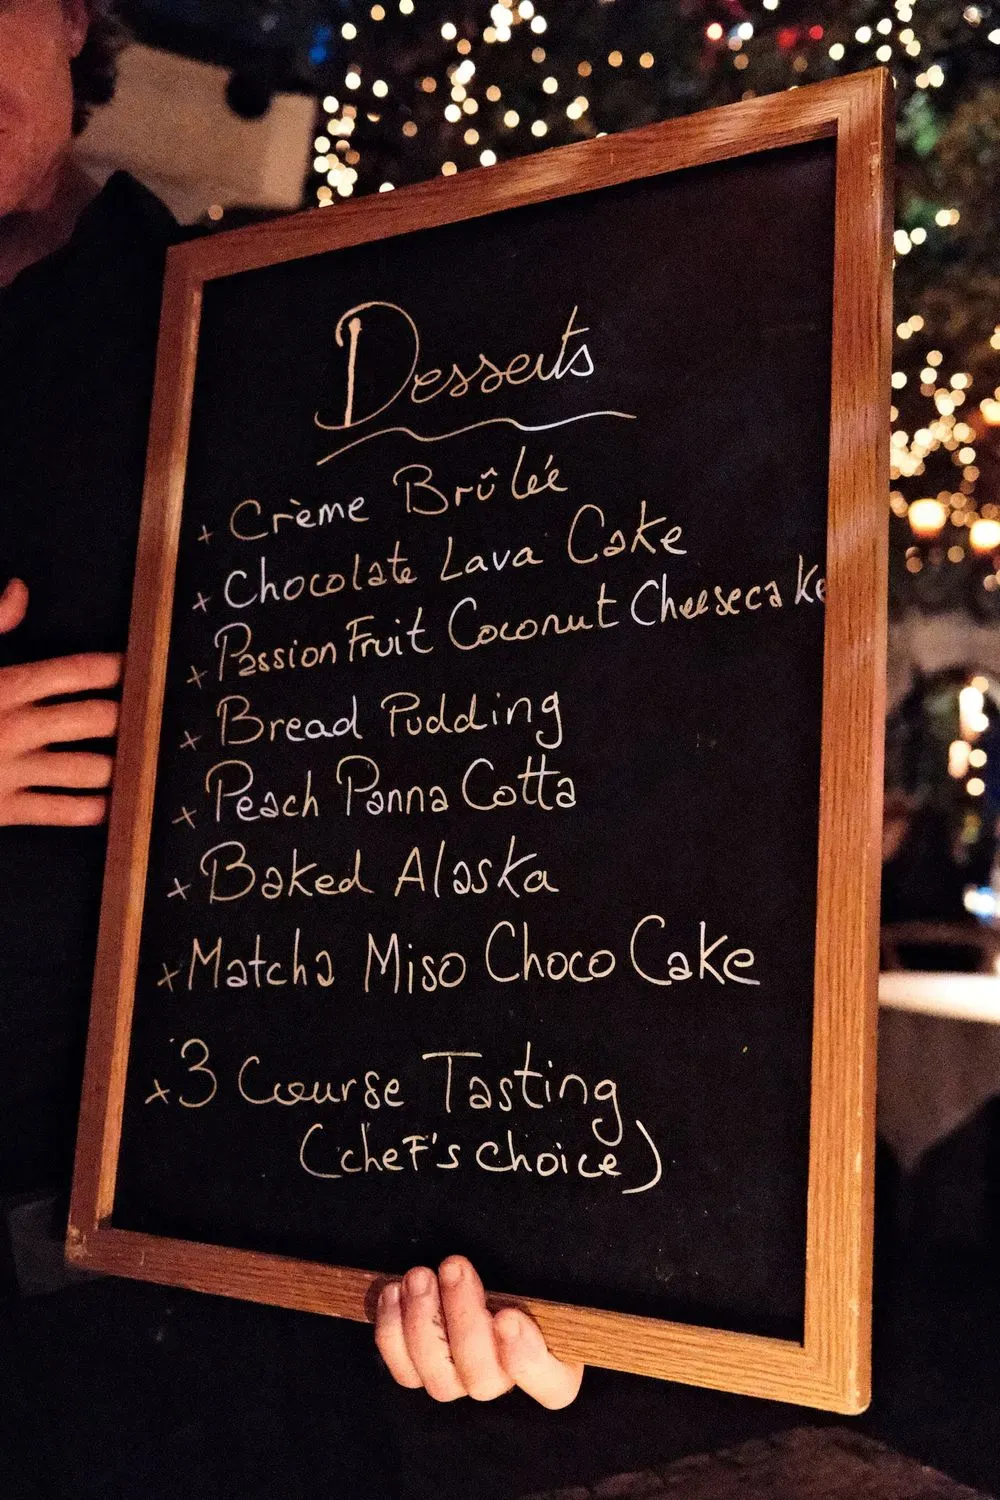 Desserts
x Crème Brûlée
x Chocolate Lava Cake
x Passion Fruit Coconut Cheesecake
x Bread Pudding
x Peach Panna Cotta
x Baked Alaska
x Matcha Miso Choco Cake
x 3 Course Tasting
(chef's choice)